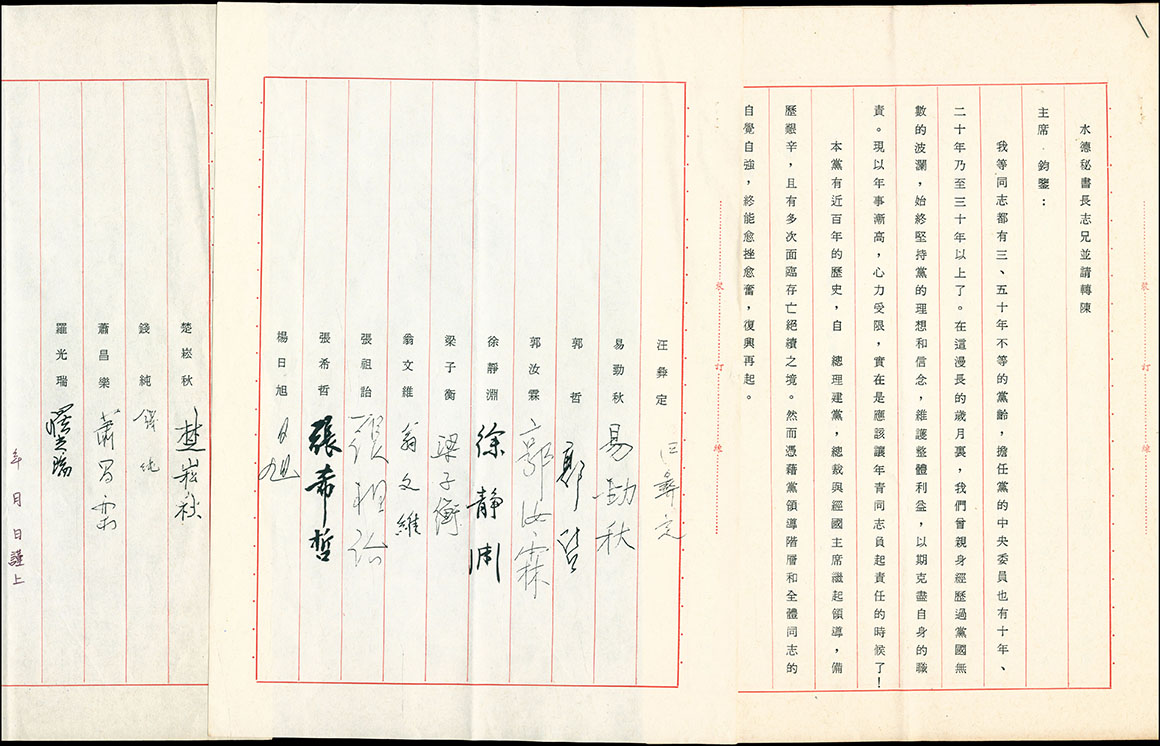 水德秘書長志兄並請轉陳
主席．鈞鑒：
我等同志都有三、五十年不等的黨齡，擔任黨的中央委員也有十年、
二十年乃至三十年以上了。在這漫長的歲月裏，我們曾親身經歷過黨國無
數的波瀾，始終堅持黨的理想和信念，維護整體利益，以期克盡自身的職
責。現以年事漸高，心力受限，實在是應該讓年青同志負起責任的時候了！
本黨有近百年的歷史，自　總理建黨，總裁與經國主席繼起領導，備
歷艱辛，且有多次面臨存亡絕續之境。然而憑藉黨領導階層和全體同志的
自覺自強，終能愈挫愈奮，復興再起。
裝訂線
裝訂線
汪彝定 汪彝定
易勁秋 易勁秋
郭哲 郭哲
郭汝霖 郭汝霖
徐靜淵 徐靜渊
梁子衡 梁子衡
翁文維 翁文維
張祖詒 張祖詒
張希哲 張希哲
楊日旭 日旭
楚崧秋 楚崧秋
錢純 錢純
蕭昌樂 蕭昌樂
羅光瑞 羅光瑞
年 月 日謹上